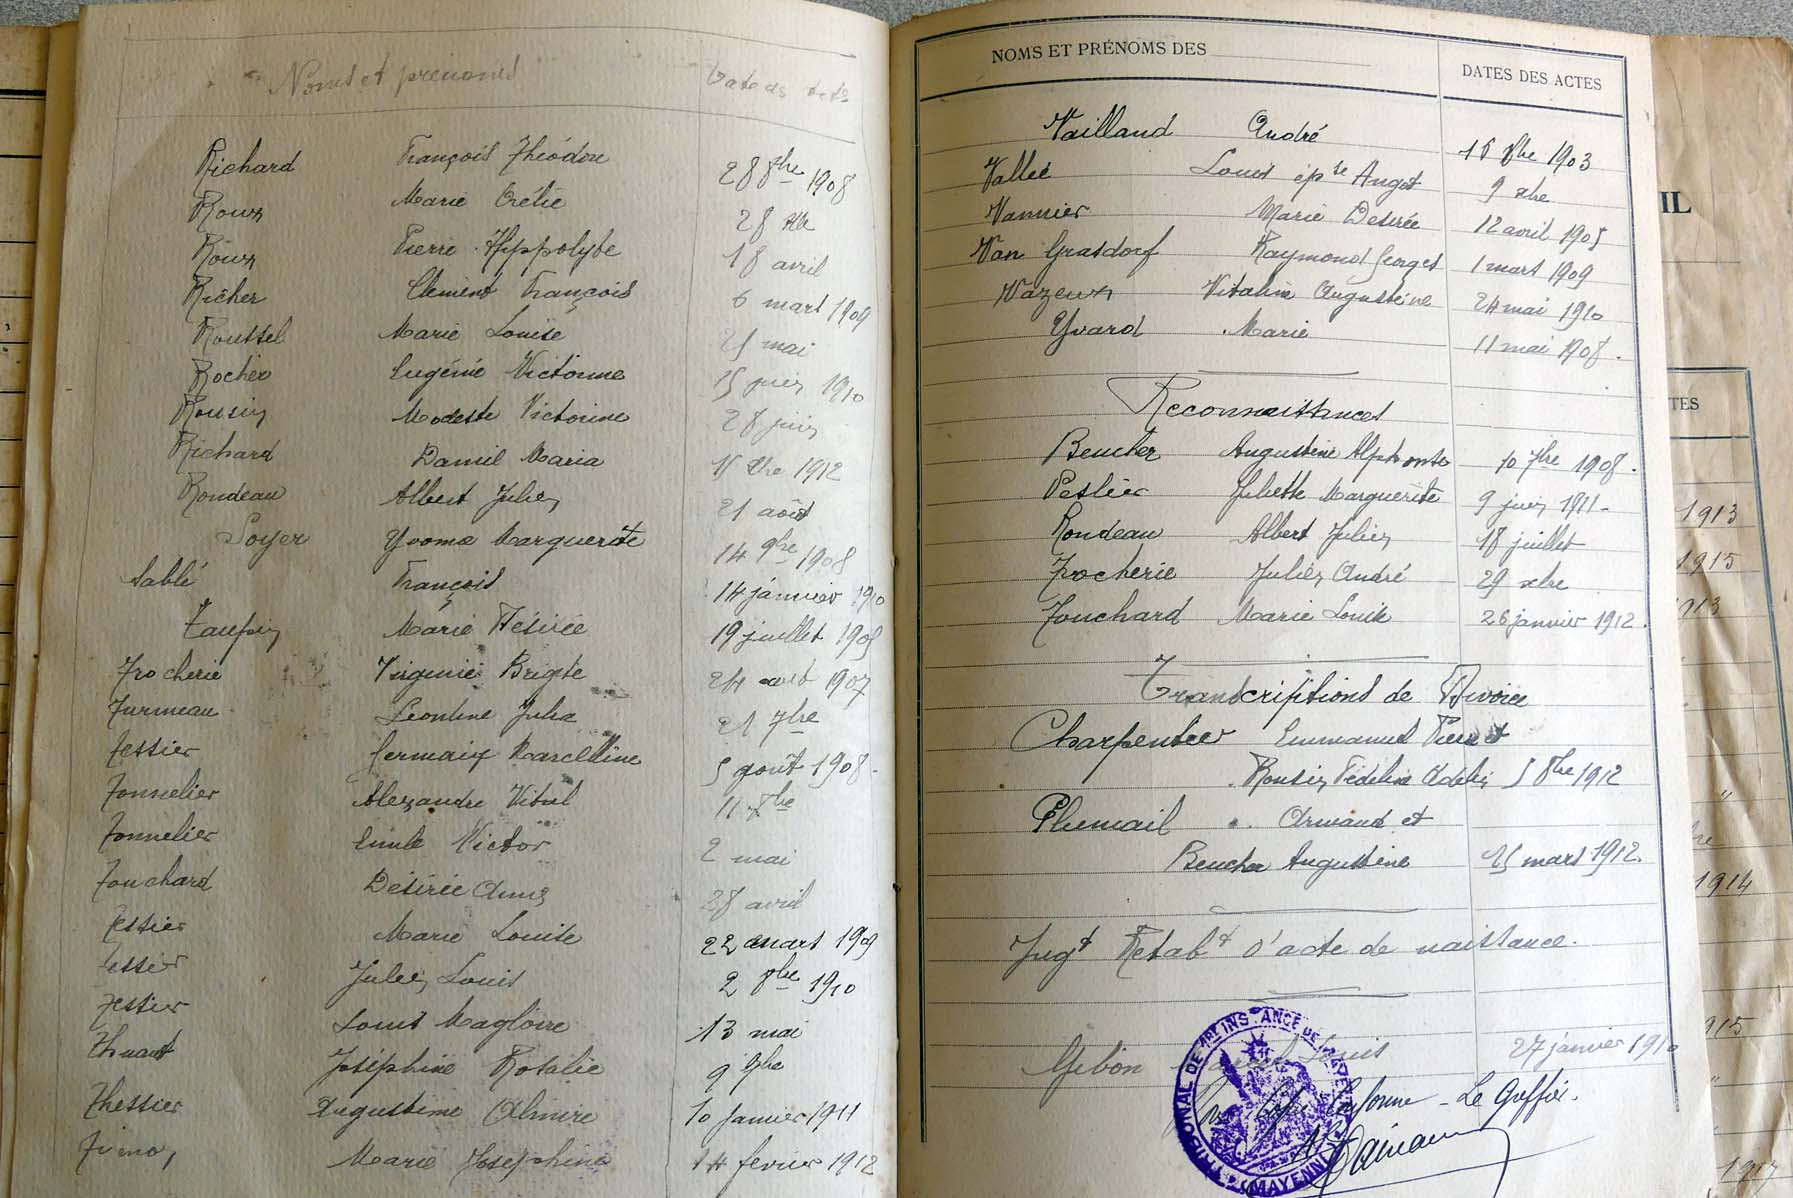 Noms et prénoms Date des actes
Richard François Théodore 28 8bre 1908
Roux Marie 28
Roux Pierre Hippolyte 18 avril
Richer Clément François 6 mars 1909
Roussel Marie Louise 25 mai
Rocher Eugénie Victorine 15 juin 1910
Rousin Modeste Victorine 28 juin
Richard Daniel Maria 1912
Rondeau Albert Julien 21 août
Soyer Yvonne Marguerite 14 9bre 1908
Sablé François 14 janvier 1910
Taupin Marie Désirée 19 juillet 1905
Trocherie Virginie Brigite 24 1907
Turmeau Léontine Julia 21 7bre
Tessier Germain Marcelline 5 août 1908
Tonnelier Alexandre Vital 11 8bre
Tonnelier Emile Victor 2 mai
Touchard Désirée Anna 28 avril
Tessier Marie Louise 22 mars 1909
Tessier Julien Louis 2 8bre 1910
Tessier Louis Magloire 13 mai
Thuault Joséphine Rosalie 9 9bre
Thessier Augustine Almire 10 janvier 1911
Marie Joséphine 14 février 1912
NOMS ET PRÉNOMS DES DATES DES ACTES
Vailland André 15 8bre 1903
Vallée Louis épse Angot 9 xbre
Vannier Marie Désirée 12 avril 1905
Van Grasdorf Raymond Georges 1 mars 1909
Vazeux Vitaline Augustine 24 mai 1910
Yvard Marie 11 mai 1908.
Reconnaissances
Beucher Augustine Alphonse 10 7bre 1908.
Peslier Juliette Marguerite 9 juin 1911.
Rondeau Albert Julien 18 juillet
Trocherie Julien André 29 xbre
Touchard Marie Louise 26 janvier 1912.
Transcriptions de Divorce
Charpentier Emmanuel Pierre et
Rousin Fideline Adèle 5 8bre 1912
Plumail Armand et
Beucher Augustine 15 mars 1912.
Jugt Retabt d'acte de naissance.
Gibon Marcel Louis 27 janvier 1910
Pour Copie Conforme - Le Greffier.
TRIBUNAL DE 1ère INSTANCE DE MAYENNE
(MAYENNE)
IL
TES
1913
1915
1913
"
"
1914
1915
"
"
1917